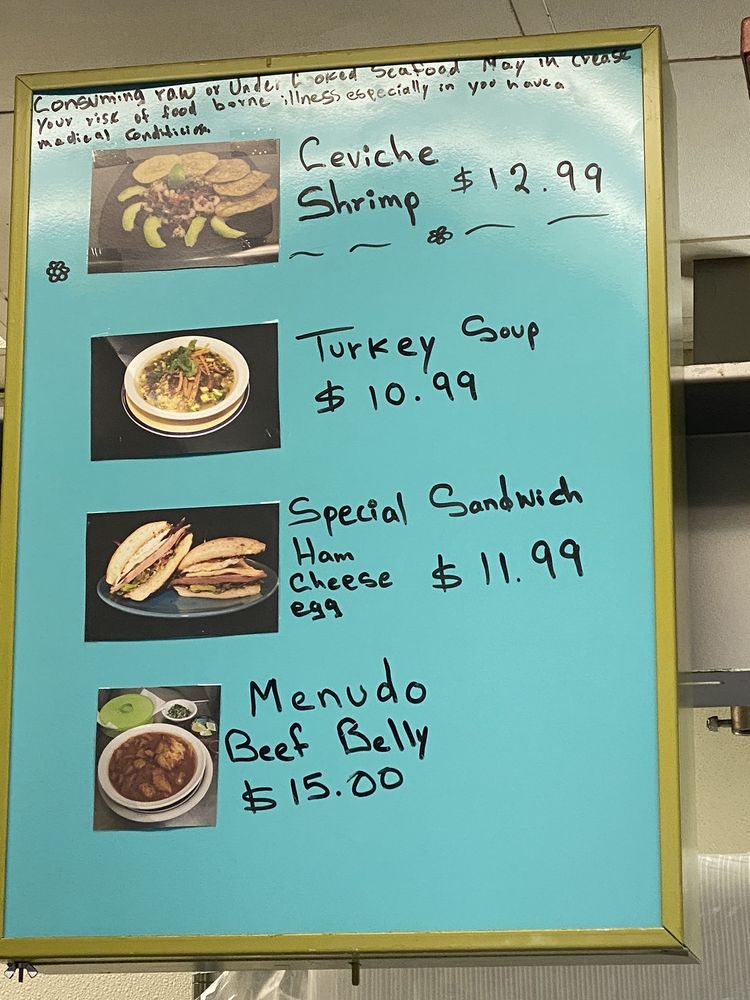 Consuming raw or Under Cooked Seafood May in crease
Your risk of food borne illness especially in you have a
medical Condidicion
Ceviche
Shrimp $12.99
Turkey Soup
$10.99
Special Sandwich
Ham
Cheese $11.99
egg
Menudo
Beef Belly
$15.00